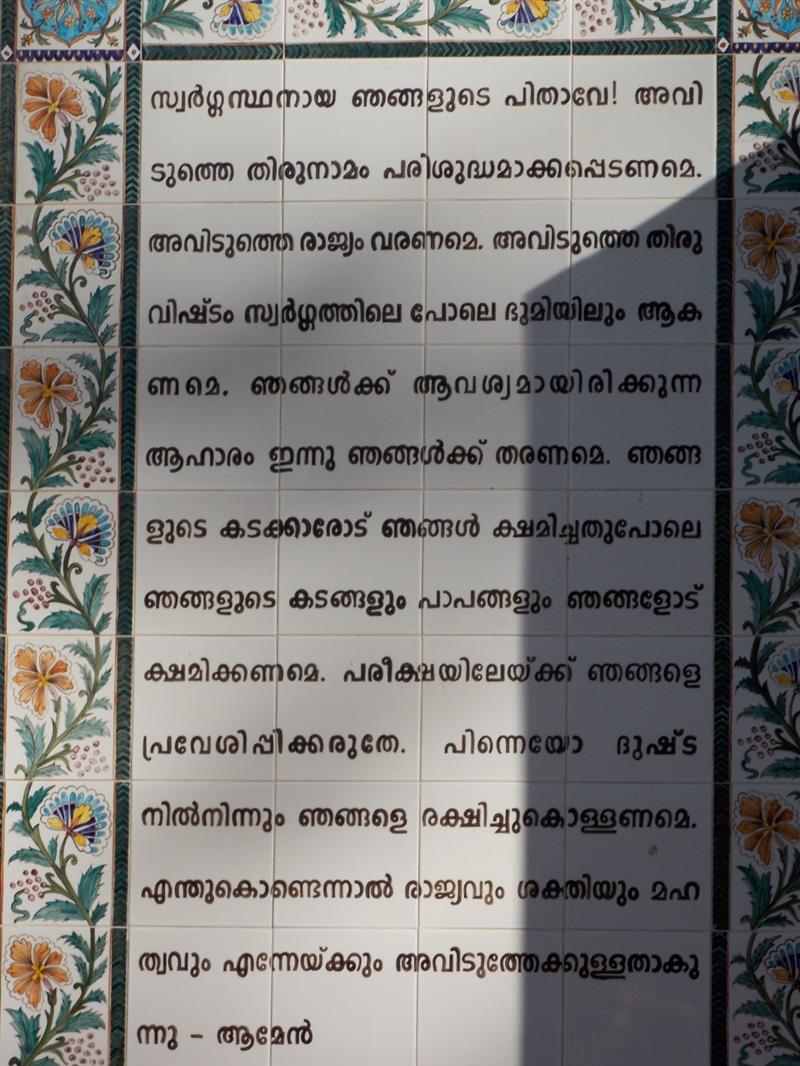 സ്വർഗ്ഗസ്ഥനായ ഞങ്ങളുടെ പിതാവേ! അവി
ടുത്തെ തിരുനാമം പരിശുദ്ധമാക്കപ്പെടണമെ.
അവിടുത്തെ രാജ്യം വരണമെ. അവിടുത്തെ തിരു
വിഷ്ടം സ്വർഗ്ഗത്തിലെ പോലെ ഭൂമിയിലും ആക
ണമെ. ഞങ്ങൾക്ക് ആവശ്വമായിരിക്കുന്ന
ആഹാരം ഇന്നു ഞങ്ങൾക്ക് തരണമെ. ഞങ്ങ
ളുടെ കടക്കാരോട് ഞങ്ങൾ ക്ഷമിച്ചതുപോലെ
ഞങ്ങളുടെ കടങ്ങളും പാപങ്ങളും ഞങ്ങളോട്
ക്ഷമിക്കണമെ. പരീക്ഷയിലേയ്ക്ക് ഞങ്ങളെ
പ്രവേശിപ്പിക്കരുതേ. പിന്നെയോ ദുഷ്ട
നിൽനിന്നും ഞങ്ങളെ രക്ഷിച്ചുകൊള്ളണമെ.
എന്തുകൊണ്ടെന്നാൽ രാജ്യവും ശക്തിയും മഹ
ത്വവും എന്നേയ്ക്കും അവിടുത്തേക്കുള്ളതാകു
ന്നു - ആമേൻ